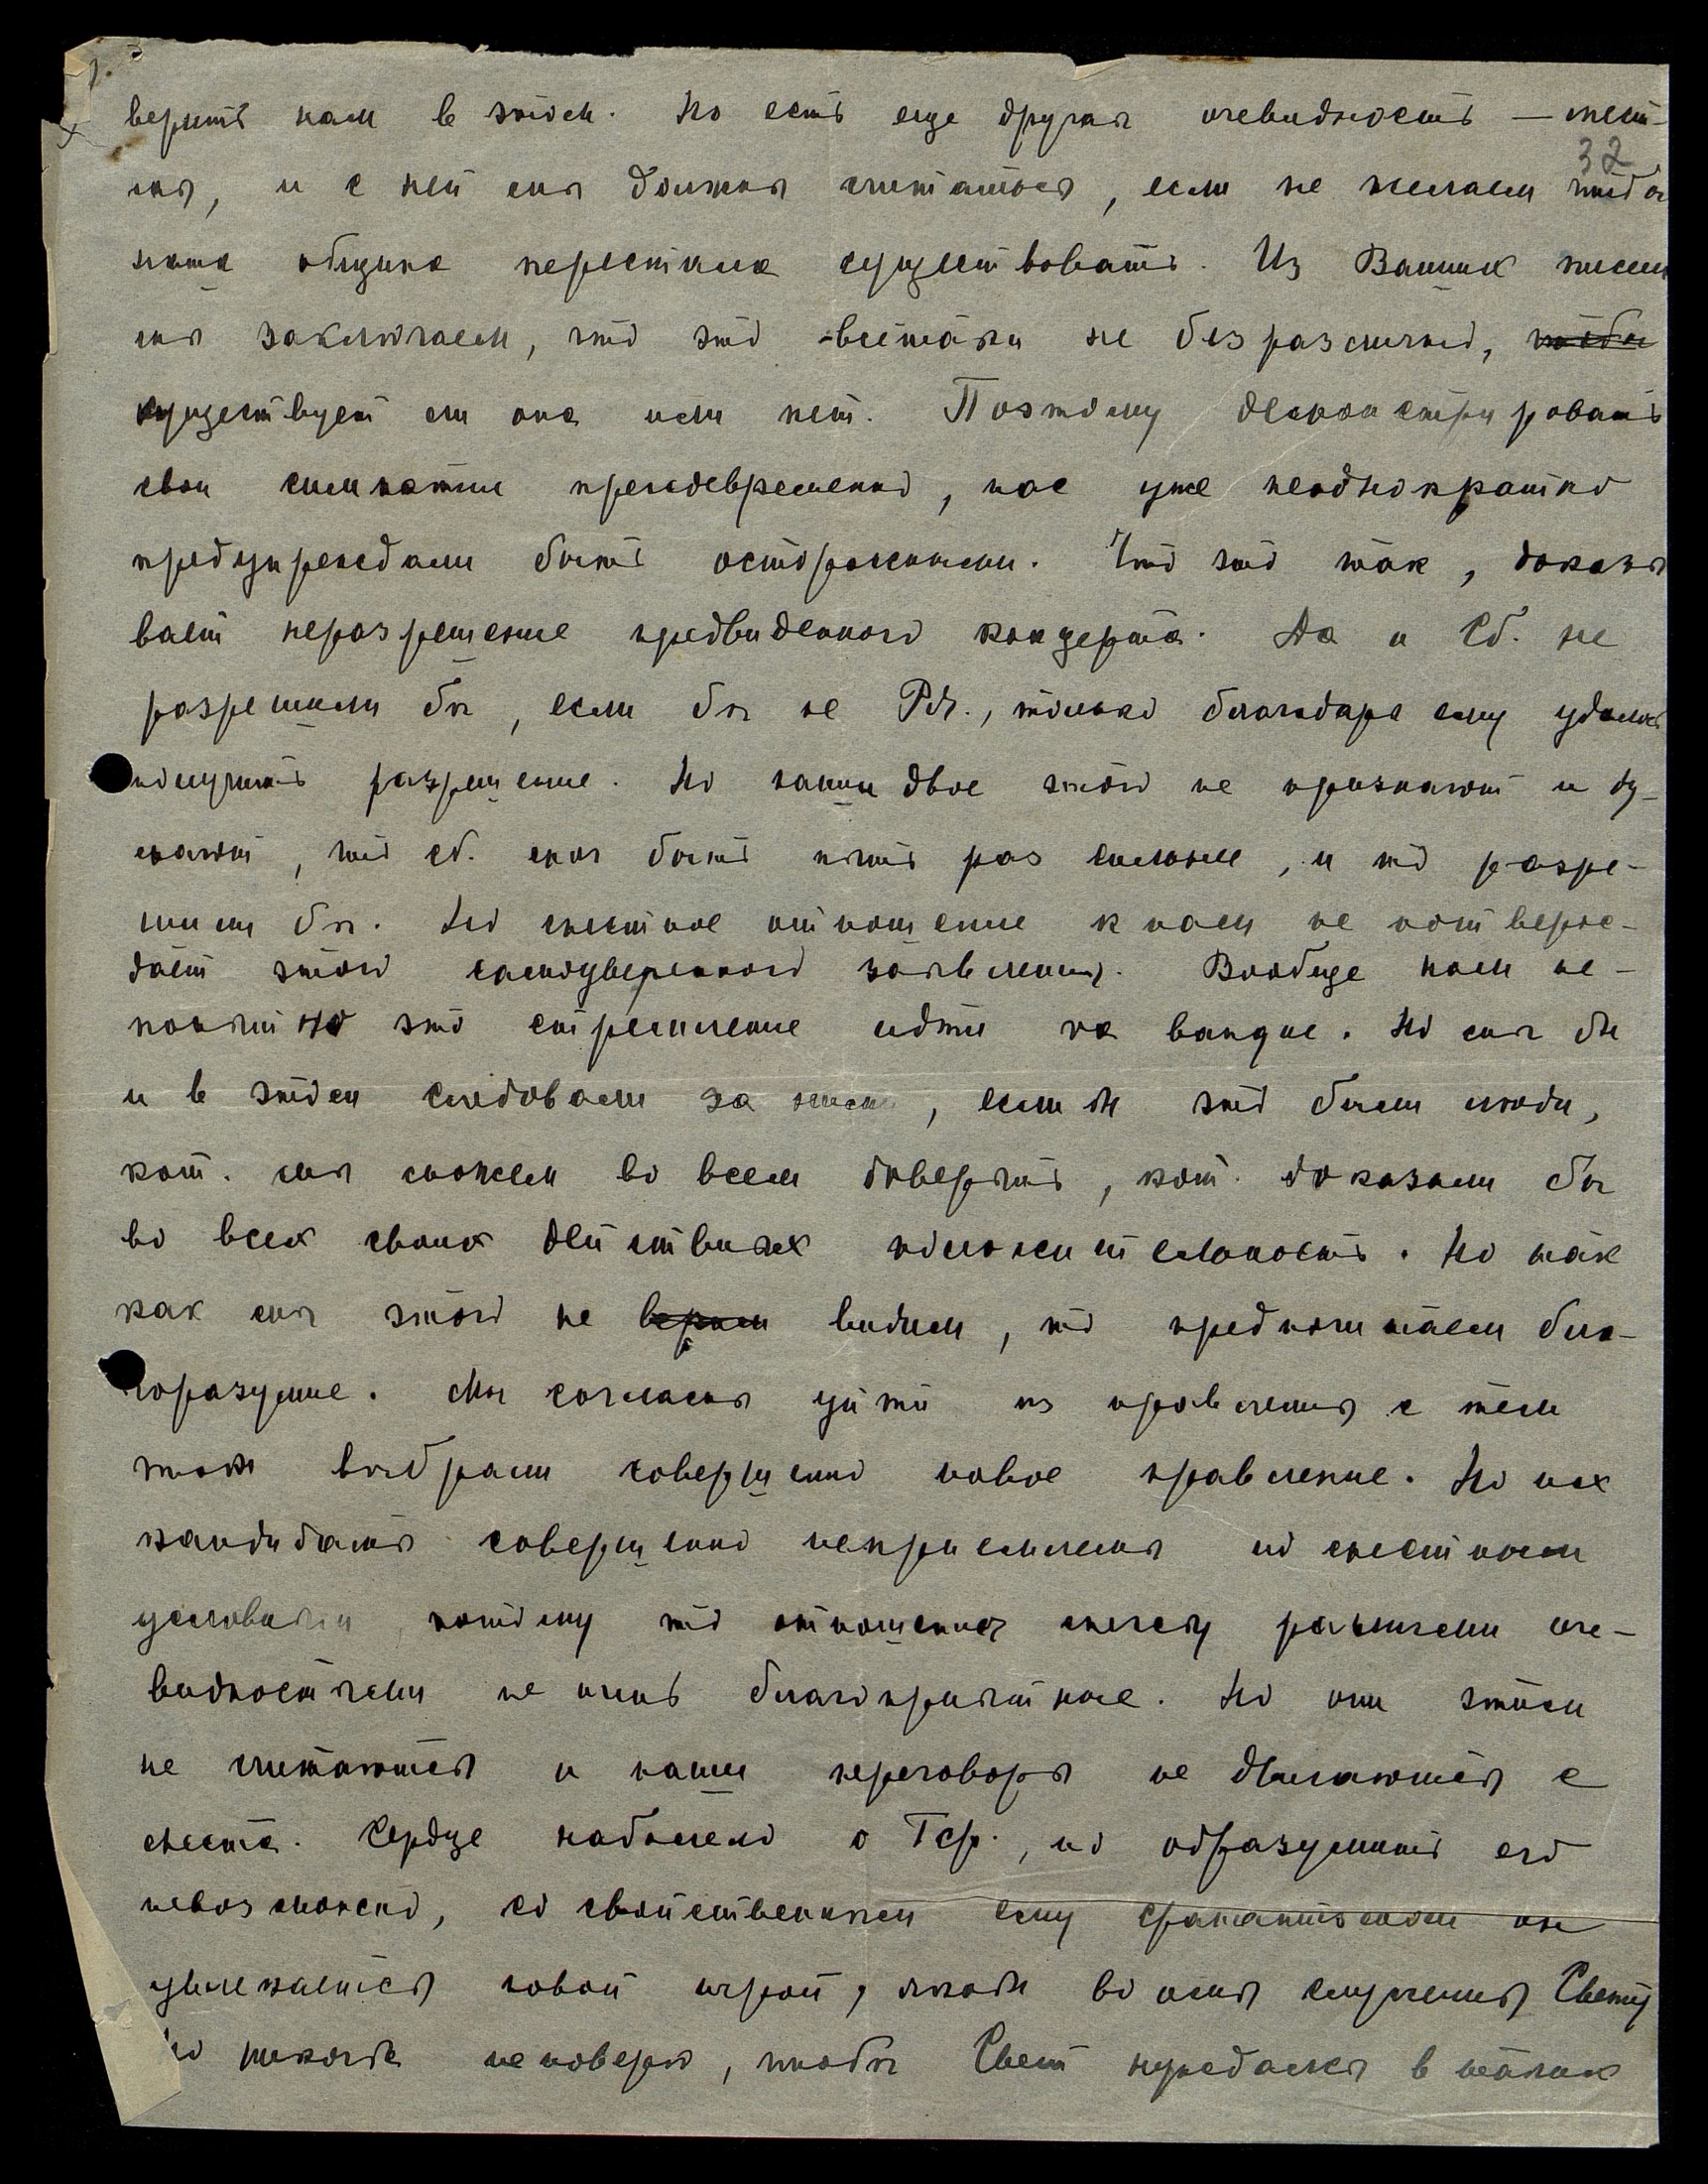 верить нам в этом. Но есть еще другая очевидность — мест-
32
ная, и с ней мы должны считаться, если не желаем чтобы
наша община перестала существовать. Из Ваших писем
мы заключаем, что это всетаки не безразлично, чтобы
существует ли она или нет. Поэтому демонстрировать
свои симпатии преждевременно, нас уже неоднократно
предупреждали быть осторожными. Что это так, доказы
вает неразрешение предвиденного концерта. Да и Сб. не
разрешили бы, если бы не Рдз., только благодаря ему удалось
получить разрешение. Но наши двое этого не признают и ду-
мают, что сб. мог быть пять раз сильнее, и то разре-
шили бы. Но местное отношение к нам не потверж-
дает этого самоуверенного заявления. Вообще нам не-
понятно это стремление идти на вандие. Но мы бы
и в этом следовали за ними, если бы это были люди,
кот. мы можем во всем доверять, кот. доказали бы
во всех своих действиях положительность. Но так
как мы этого не верим видим, то предпочитаем бла-
горазумие. Мы согласны уйти из правления с тем
чтобы выбрали совершенно новое правление. Но их
кандидаты совершенно неприемлемы по местным
условиям, потому что отношения между разными оче-
видностями не очень благоприятные. Но они этим
не считаются и наши переговоры не двигаются с
места. Сердце наболело о Гар., но образумить его
невозможно, со свойственным ему фанатизмом он
увлекается новой игрой, якобы во имя служения Свету
Но никогда не поверю, чтобы Свет нуждался в таких